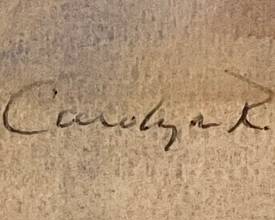 Carolyn R.